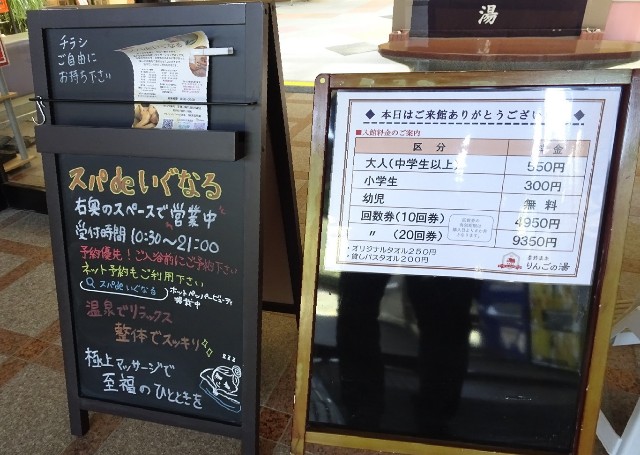 チラシ
ご自由に
お持ち下さい
スパdeいぐなる
右奥のスペースで営業中
受付時間 10:30〜21:00
予約優先!ご入浴前にご予約下さい
ネット予約もご利用下さい
スパdeいぐなる
ホットペッパービューティ
掲載中
温泉でリラックス
整体でスッキリ
極上マッサージで
至福のひとときを
zzz
湯
◆ 本日はご来館ありがとうござい
■入館料金のご案内
区 分 料金
大人(中学生以上) 550円
小学生 300円
幼児 無料
回数券(10回券) 4950円
〃 (20回券) 9350円
・オリジナルタオル250円
・貸しバスタオル200円
りんごの湯